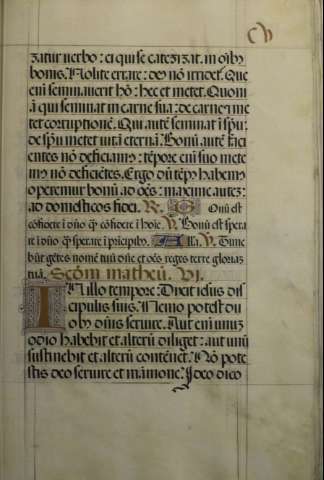 cv
zatur verbo: ei qui se catezizat. in oībꝯ
bonis. Nolite errare: deꝯ nō irridet. Que
enī semīauerit hō: hec et metet. Quoni
ā qui seminat in carne sua: de carne et me
tet corruptionē. Qui autē seminat ī spū:
de spū metet vitā eternā. Bonū autē faci
entes nō deficiamꝯ: tēpore enī suo mete
mꝯ nō deficiētes. Ergo dū tēpꝯ habemꝯ
operemur bonū ad oēs: maxime autē:
ad domesticos fidei. R. Bonū est
cōfidere ī dño q̄ cōfidere ī hoīe. V. Bonū est spera
re ī dño q̄ sperare ī prīcipibꝯ. Alla. V. Time
būt gētes nomē tuū dñe et oēs reges terre gloriaꝫ
tuā. Scōm matheū. VI.
In illo tempore: Dixit iesus dis
cipulis suis. Nemo potest du
obꝯ dñis seruire. Aut enī unuꝫ
odio habebit et alterū diliget: aut unū
sustinebit et alterū contēnet. Nō pote
stis deo seruire et māmone. Ideo dico